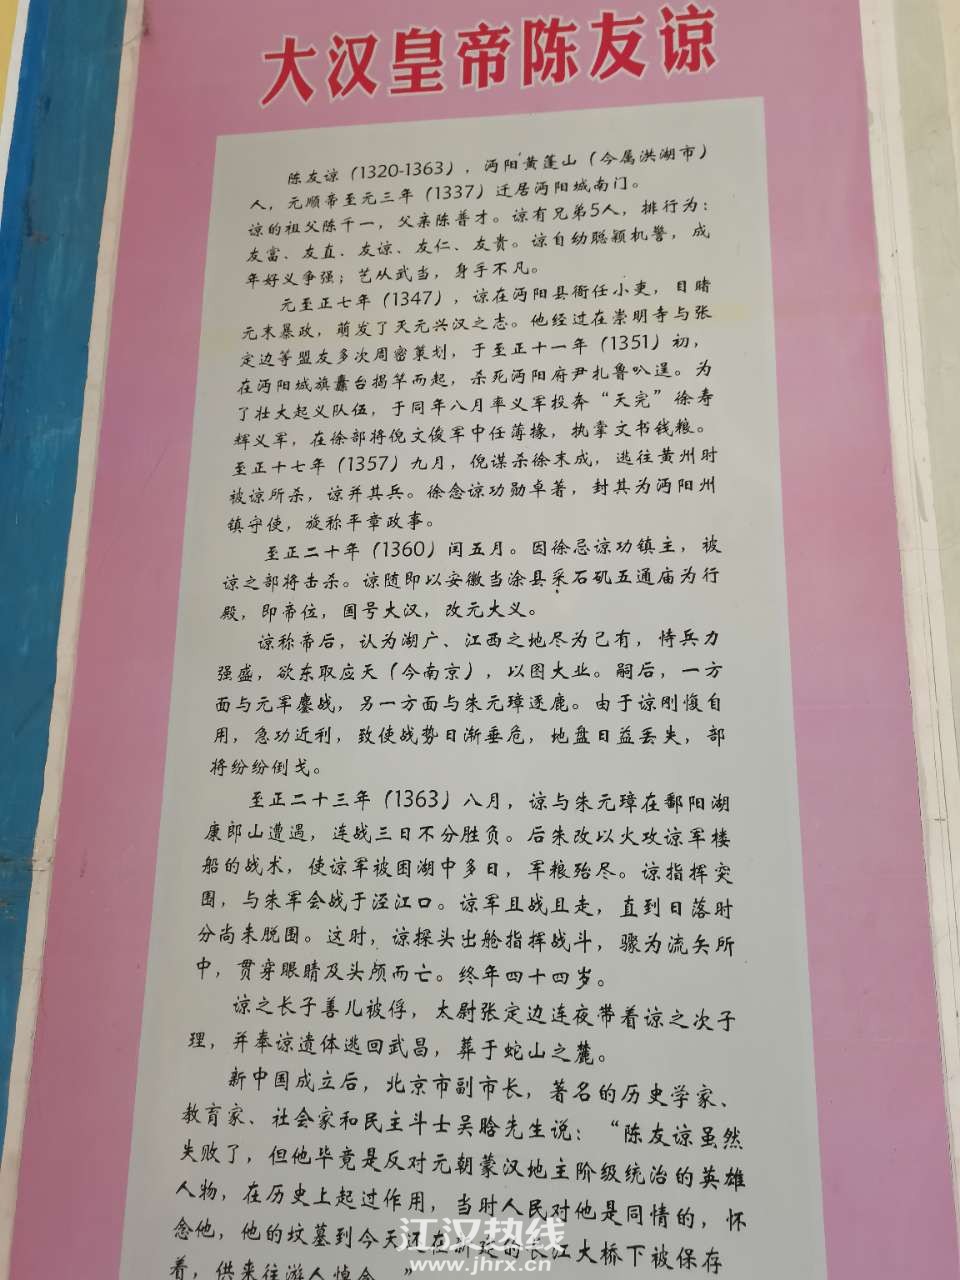 大汉皇帝陈友谅
陈友谅（1320-1363），沔阳黄蓬山（今属洪湖市）
人，元顺帝至元三年（1337）迁居沔阳城南门。
谅的祖父陈千一，父亲陈普才。谅有兄弟5人，排行为：
友富、友直、友谅、友仁、友贵。谅自幼聪颖机警，成
年好义争强；艺从武当，身手不凡。
元至正七年（1347），谅在沔阳县衙任小吏，目睹
元末暴政，萌发了灭元兴汉之志。他经过在崇明寺与张
定边等盟友多次周密策划，于至正十一年（1351）初，
在沔阳城旗纛台揭竿而起，杀死沔阳府尹扎鲁叭逞。为
了壮大起义队伍，于同年八月率义军投奔“天完”徐寿
辉义军，在徐部将倪文俊军中任薄掾，执掌文书钱粮。
至正十七年（1357）九月，倪谋杀徐未成，逃往黄州时
被谅所杀，谅并其兵。徐念谅功勋卓著，封其为沔阳州
镇守使，旋称平章政事。
至正二十年（1360）闰五月。因徐忌谅功镇主，被
谅之部将击杀。谅随即以安徽当涂县采石矶五通庙为行
殿，即帝位，国号大汉，改元大义。
谅称帝后，认为湖广、江西之地尽为己有，恃兵力
强盛，欲东取应天（今南京），以图大业。嗣后，一方
面与元军鏖战，另一方面与朱元璋逐鹿。由于谅刚愎自
用，急功近利，致使战势日渐垂危，地盘日益丢失，部
将纷纷倒戈。
至正二十三年（1363）八月，谅与朱元璋在鄱阳湖
康郎山遭遇，连战三日不分胜负。后朱改以火攻谅军楼
船的战术，使谅军被困湖中多日，军粮殆尽。谅指挥突
围，与朱军会战于泾江口。谅军且战且走，直到日落时
分尚未脱围。这时，谅探头出舱指挥战斗，骤为流矢所
中，贯穿眼睛及头颅而亡。终年四十四岁。
谅之长子善儿被俘，太尉张定边连夜带着谅之次子
理，并奉谅遗体逃回武昌，葬于蛇山之麓。
新中国成立后，北京市副市长，著名的历史学家、
教育家、社会家和民主斗士吴晗先生说：“陈友谅虽然
失败了，但他毕竟是反对元朝蒙汉地主阶级统治的英雄
人物，在历史上起过作用，当时人民对他是同情的，怀
念他，他的坟墓到今天还在新建的长江大桥下被保存
着，供来往游人悼念。”
江汉热线
www.jhrx.cn